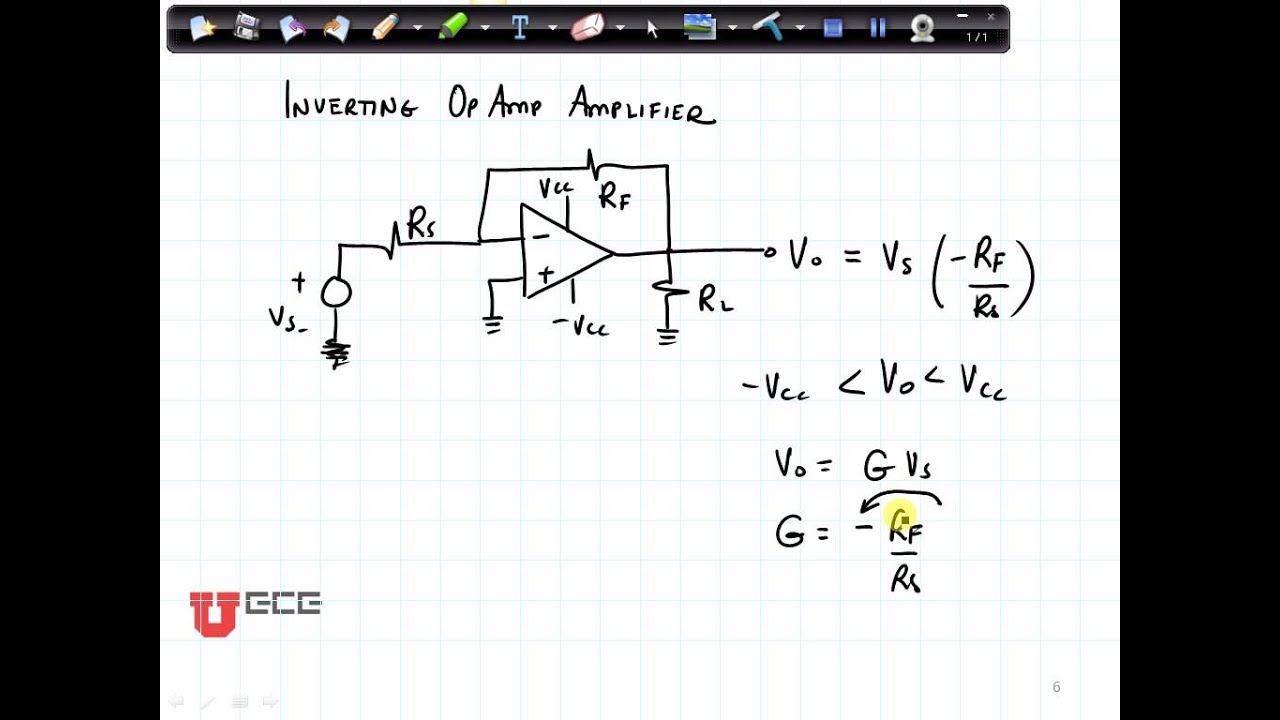 1/1
INVERTING OP AMP AMPLIFIER
Vcc
RF
Rs
−
+
+
Vs-
−Vcc
RL
Vo = Vs (−RF/Rs)
−Vcc < Vo < Vcc
Vo = G Vs
G = − RF/Rs
U ECE
6